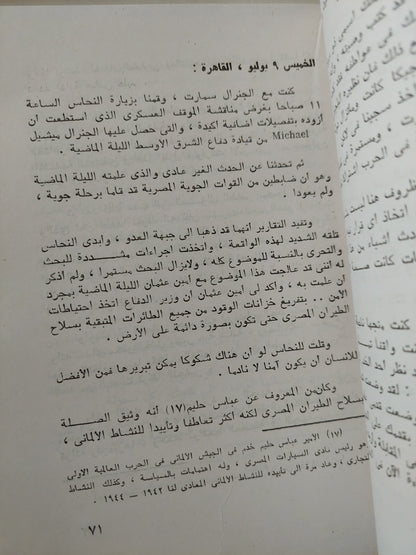 الخميس ٩ يوليو ، القاهرة :
كنت مع الجنرال سمارت ، وقمنا بزيارة النحاس الساعة
١١ صباحا بغرض مناقشة الموقف العسكرى الذى استطعت أن
أزوده بتفصيلات اضافية أكيدة ، والتى حصل عليها الجنرال ميشيل
Michael من قيادة دفاع الشرق الأوسط الليلة الماضية .
ثم تحدثنا عن الحدث الغير عادى والذى علمته الليلة الماضية
وهو أن ضابطين من القوات الجوية المصرية قد قاما برحلة جوية ،
ولم يعودا .
وتفيد التقارير أنهما قد ذهبا الى جبهة العدو ، وأبدى النحاس
قلقه الشديد لهذه الواقعة ، واتخذت اجراءات مشددة للبحث
والتحرى بالنسبة للموضوع كله ، ولايزال البحث مستمرا ، ولم أذكر
له أننى قد عالجت هذا الموضوع مع أمين عثمان الليلة الماضية بمجرد
أن علمت به ، وأكد لى أمين عثمان أن وزير الدفاع اتخذ احتياطات
الأمن .. بتفريغ خزانات الوقود من جميع الطائرات المتبقية بسلاح
الطيران المصرى حتى تكون بصورة دائمة على الأرض .
وقلت للنحاس لو أن هناك شكوكا يمكن تبريرها فمن الأفضل
للانسان أن يكون آمنا لا نادما .
وكان من المعروف عن عباس حليم (١٧) أنه وثيق الصلة
بسلاح الطيران المصرى لكنه أكثر تعاطفا وتأييدا للنشاط الألمانى ،
(١٧) الأمير عباس حليم خدم فى الجيش الألمانى فى الحرب العالمية الأولى
هو رئيس نادى السيارات المصرى ، وله اهتمامات بالسياسة ، وكذلك النشاط
التجارى ، وعاد مرة الى تأييده للنشاط الألمانى المعادى لنا ١٩٤٢ – ١٩٤٤ .
٧١